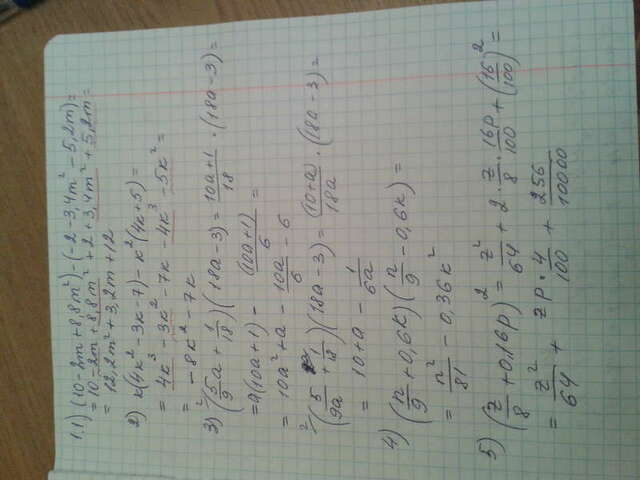 1.1) (10-2m+8,8m²)-(-2-3,4m²-5,2m)=
=10-2m+8,8m²+2+3,4m²+5,2m=
=12,2m²+3,2m+12
2) k(4k²-3k-7)-k²(4k+5)=
=4k³-3k²-7k-4k³-5k²=
=-8k²-7k
3) (5/9 a+1/18)(18a-3)=(10a+1)/18·(18a-3)=
=a(10a+1)-(10a+1)/6=
=10a²+a-10a/6-6
2) (5/9a+1/18)(18a-3)=(10+a)/18a·(18a-3)=
=10+a-1/6a
4) (n/9+0,6k)(n/9-0,6k)=
=n²/81-0,36k²
5) (z/8+0,16p)²=z²/64+2·z/8·16p/100+(16/100)²=
=z²/64+zp·4/100+256/10000